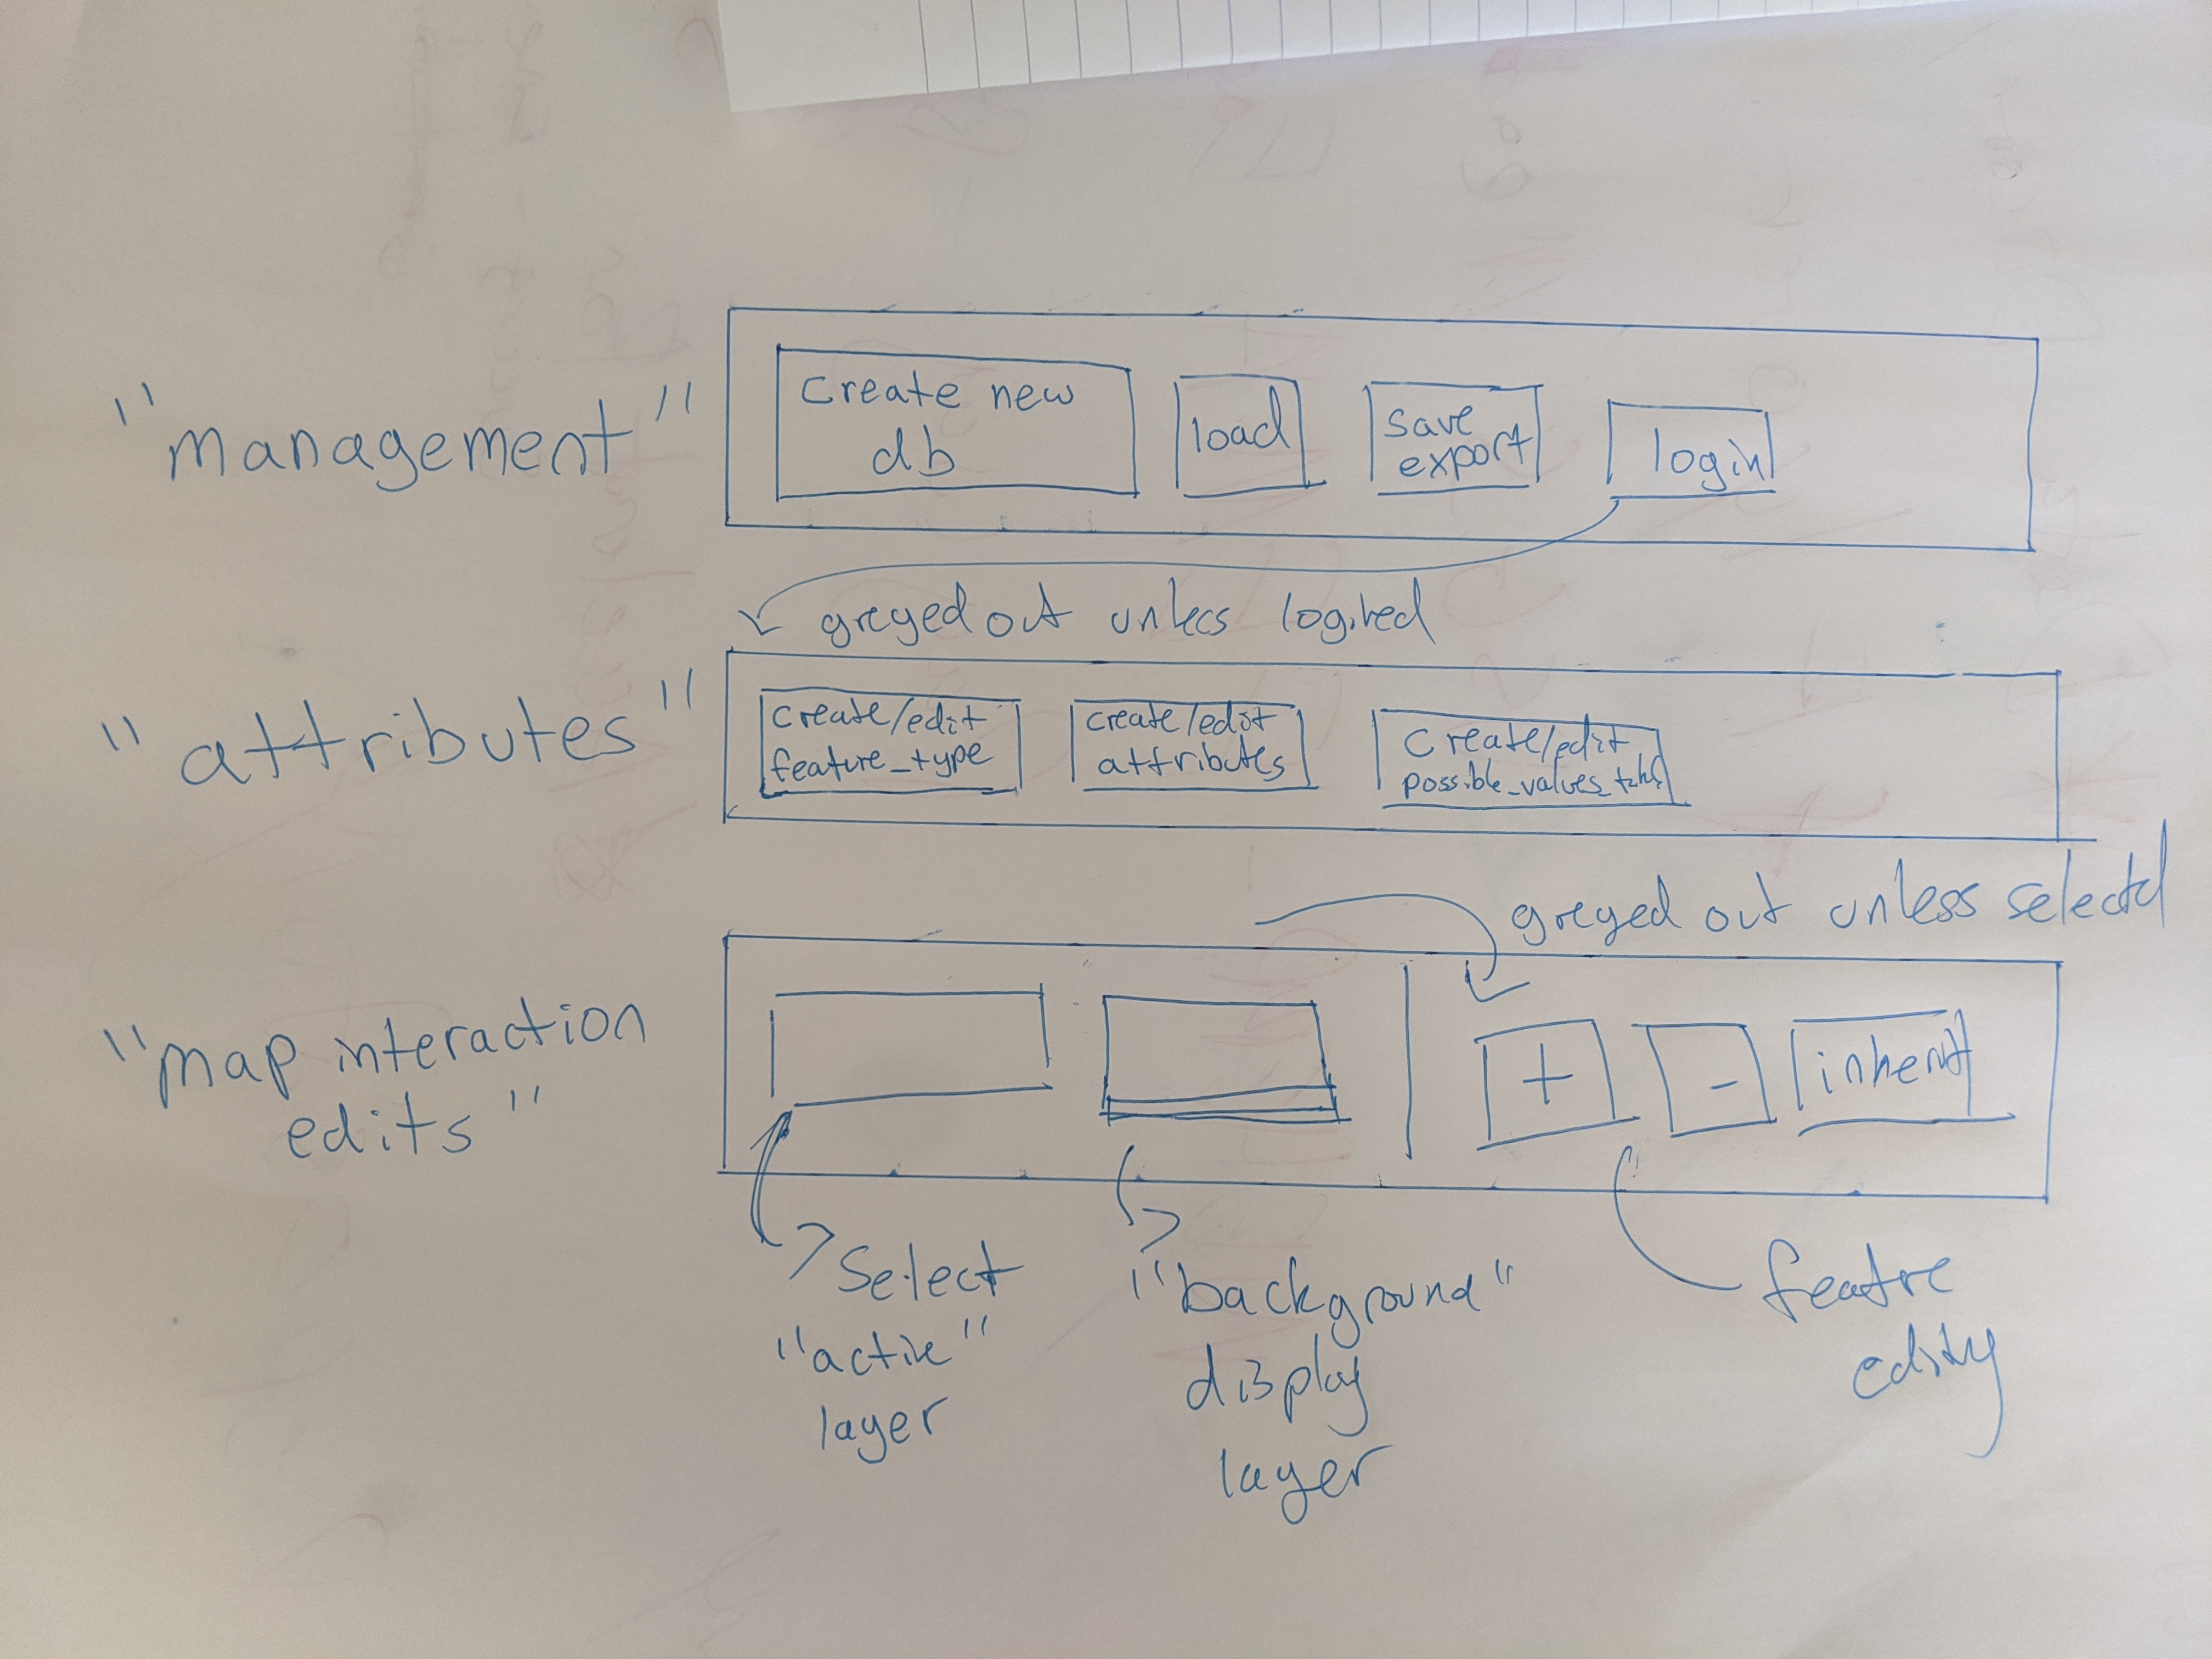 "management"
create new
db
load
save
export
login
greyed out unless
"attributes"
create/edit
feature_type
create/edit
attributes
create/edit
possible_values_
greyed out unless selectd
"map interaction
edits"
+
-
inherit
Select
"active"
layer
"background"
display
layer
featre